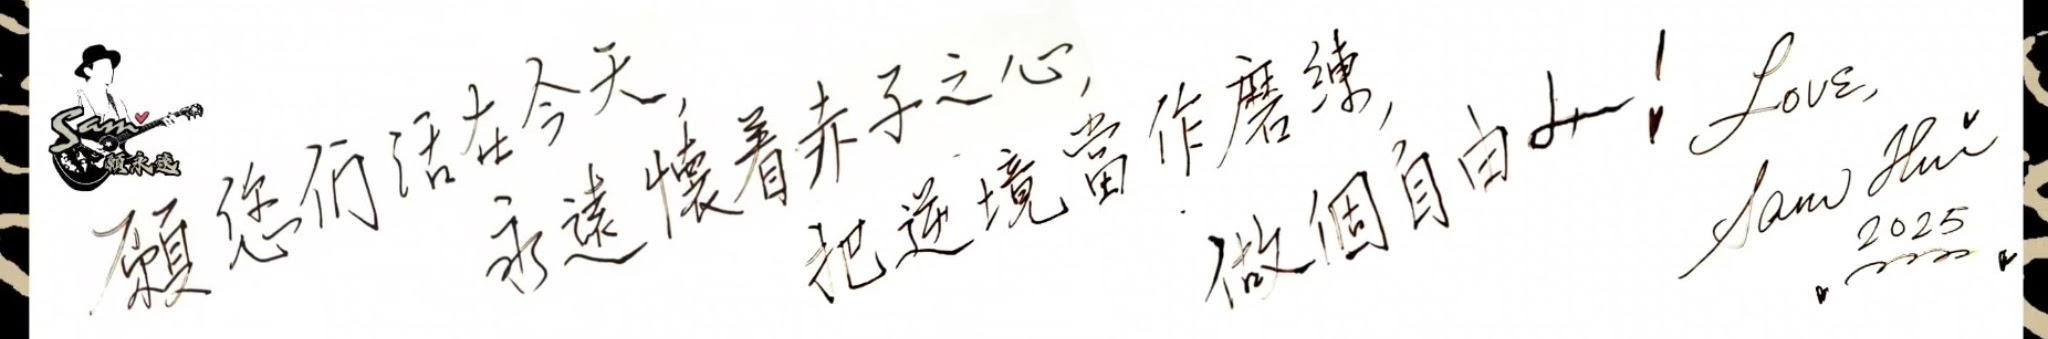 Sam
願永遠
願您們活在今天,
永遠懷着赤子之心,
把逆境當作磨練,
做個自由人!
Love,
Sam Hui
2025